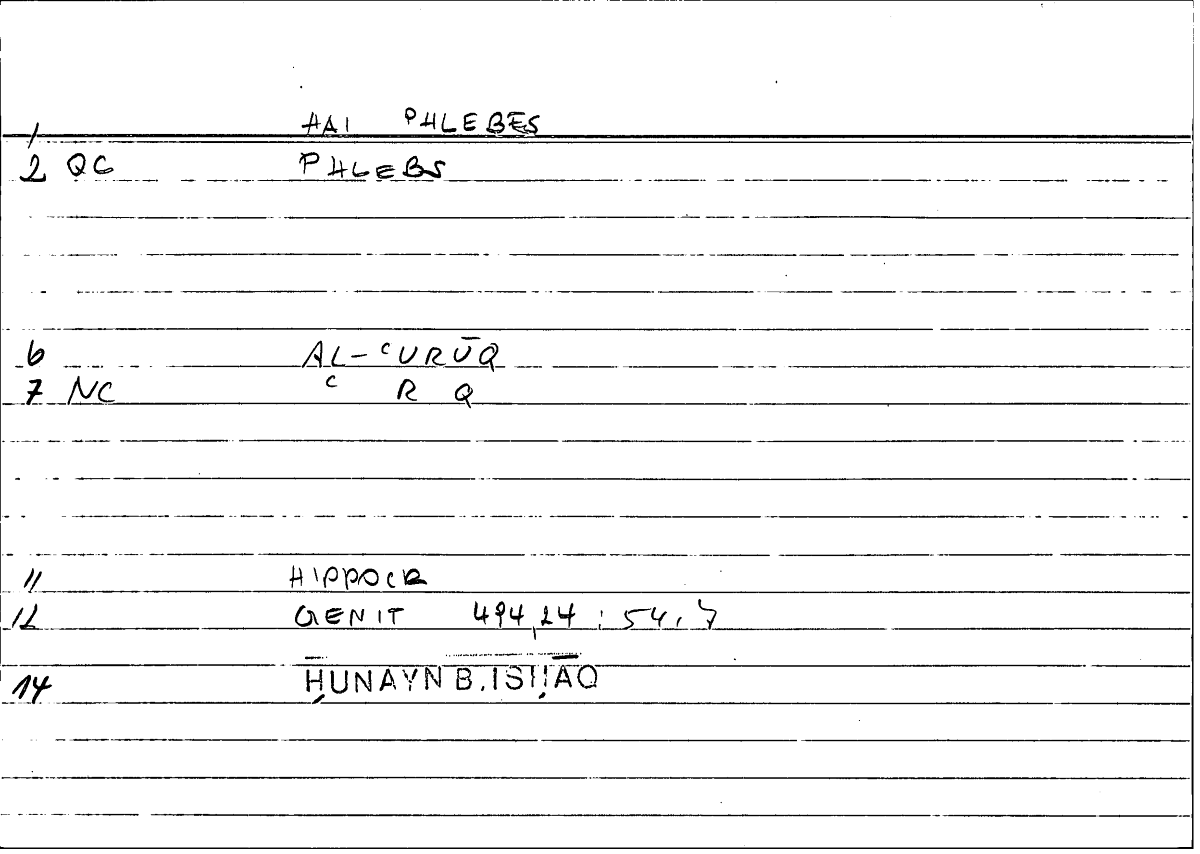 1 HAI PHLEBES
2 QG PHLEBS
6 AL-ʿURŪQ
7 NC ʿ R Q
11 HIPPOCR
12 GENIT 494,24 : 54,7
14 ḤUNAYN B. ISḤĀQ